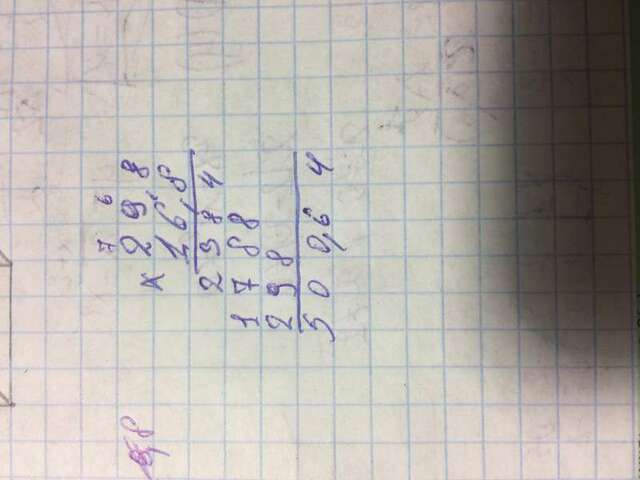 7 6
2 9 8
× 1 6,8
2 3 8 4
1 7 8 8
2 9 8
5 0 0,6 4